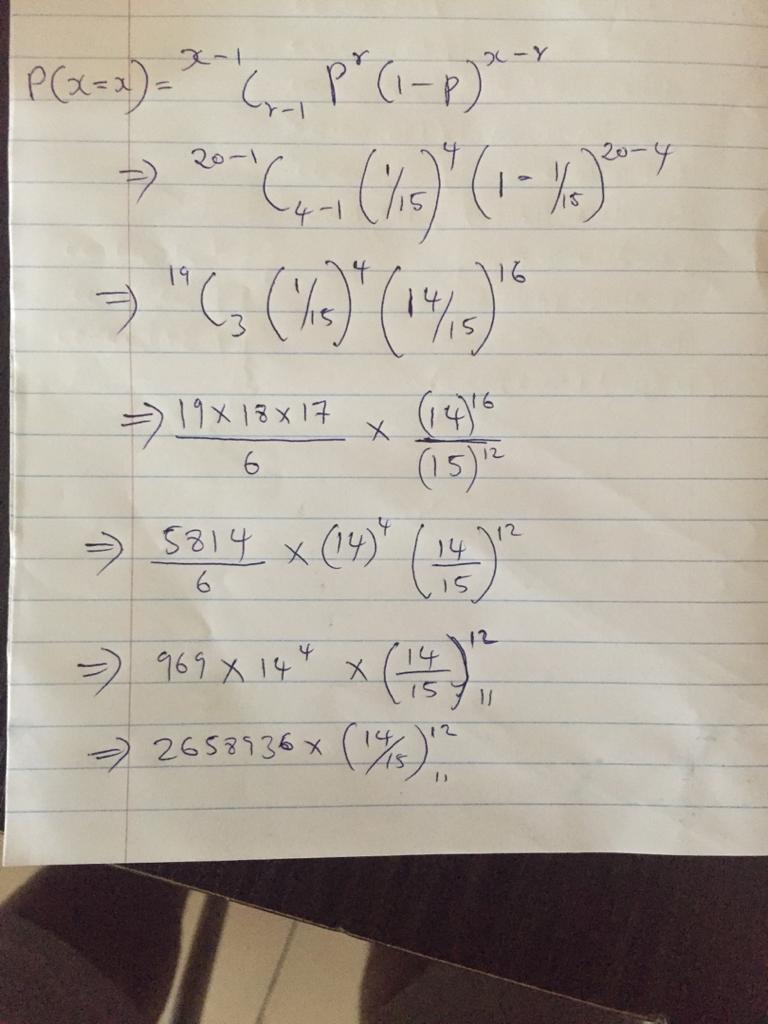 P(x=x) = ^{x-1}C_{r-1} P^r (1-p)^{x-r}
⇒ ^{20-1}C_{4-1} (1/15)^4 (1 - 1/15)^{20-4}
⇒ ^{19}C_3 (1/15)^4 (14/15)^{16}
⇒ \frac{19 × 18 × 17}{6} × \frac{(14)^{16}}{(15)^{12}}
⇒ \frac{5814}{6} × (14)^4 (\frac{14}{15})^{12}
⇒ 969 × 14^4 × (\frac{14}{15})^{12} _{11}
⇒ 2658936 × (14/15)^{12} _{11}